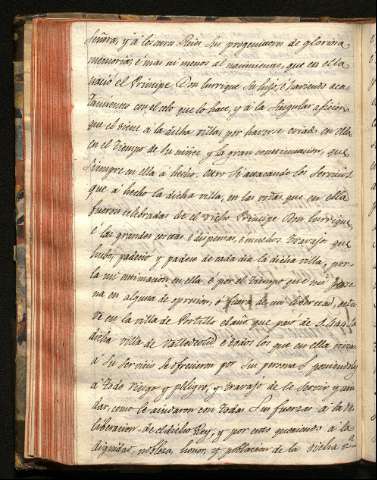 señora, y á los otros Reies sus progenitores de gloriosa
memoria, é mas ni menos al nacimiento, que en ella
nació el Principe Don Enrrique su hijo, é haviendo aca
tamiento con el celo que lo hace, y á la singular aficion
que él tiene a la dicha villa, por haverse criado en ella
en el tiempo de su niñez, y la gran continuacion, que
siempre en ella a hecho. Otro si acatando los servicios
que á hecho la dicha villa, en las que en ella
fueron celebradas de el dicho Principe Don Enrrique,
é las grandes costas é dispensas, é muchos travajos que
hubo, padecio y padece de cada dia la dicha villa, por
la mi continuacion en ella, é por el tiempo que mi Perso
na en alguna de opresion, é fuera de mi libertad, estu
ve en la villa de Portillo el año que pasó de
dicha villa de Valladolid é todos los que en ella vivian
á su servicio se ofrecieron por sus personas poniendose
a todo riesgo y peligro, y travajo de le servir y aiu
dar, como le aiudaron con todas sus fuerzas á la de
liberacion de el dicho Rey, y por esto queriendo a la
dignidad, nobleza, honor, y poblacion de la dicha